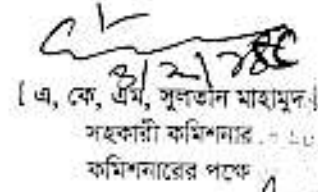 [ এ, কে, এম, সুলতান মাহামুদ ]
সহকারী কমিশনার
কমিশনারের পক্ষে